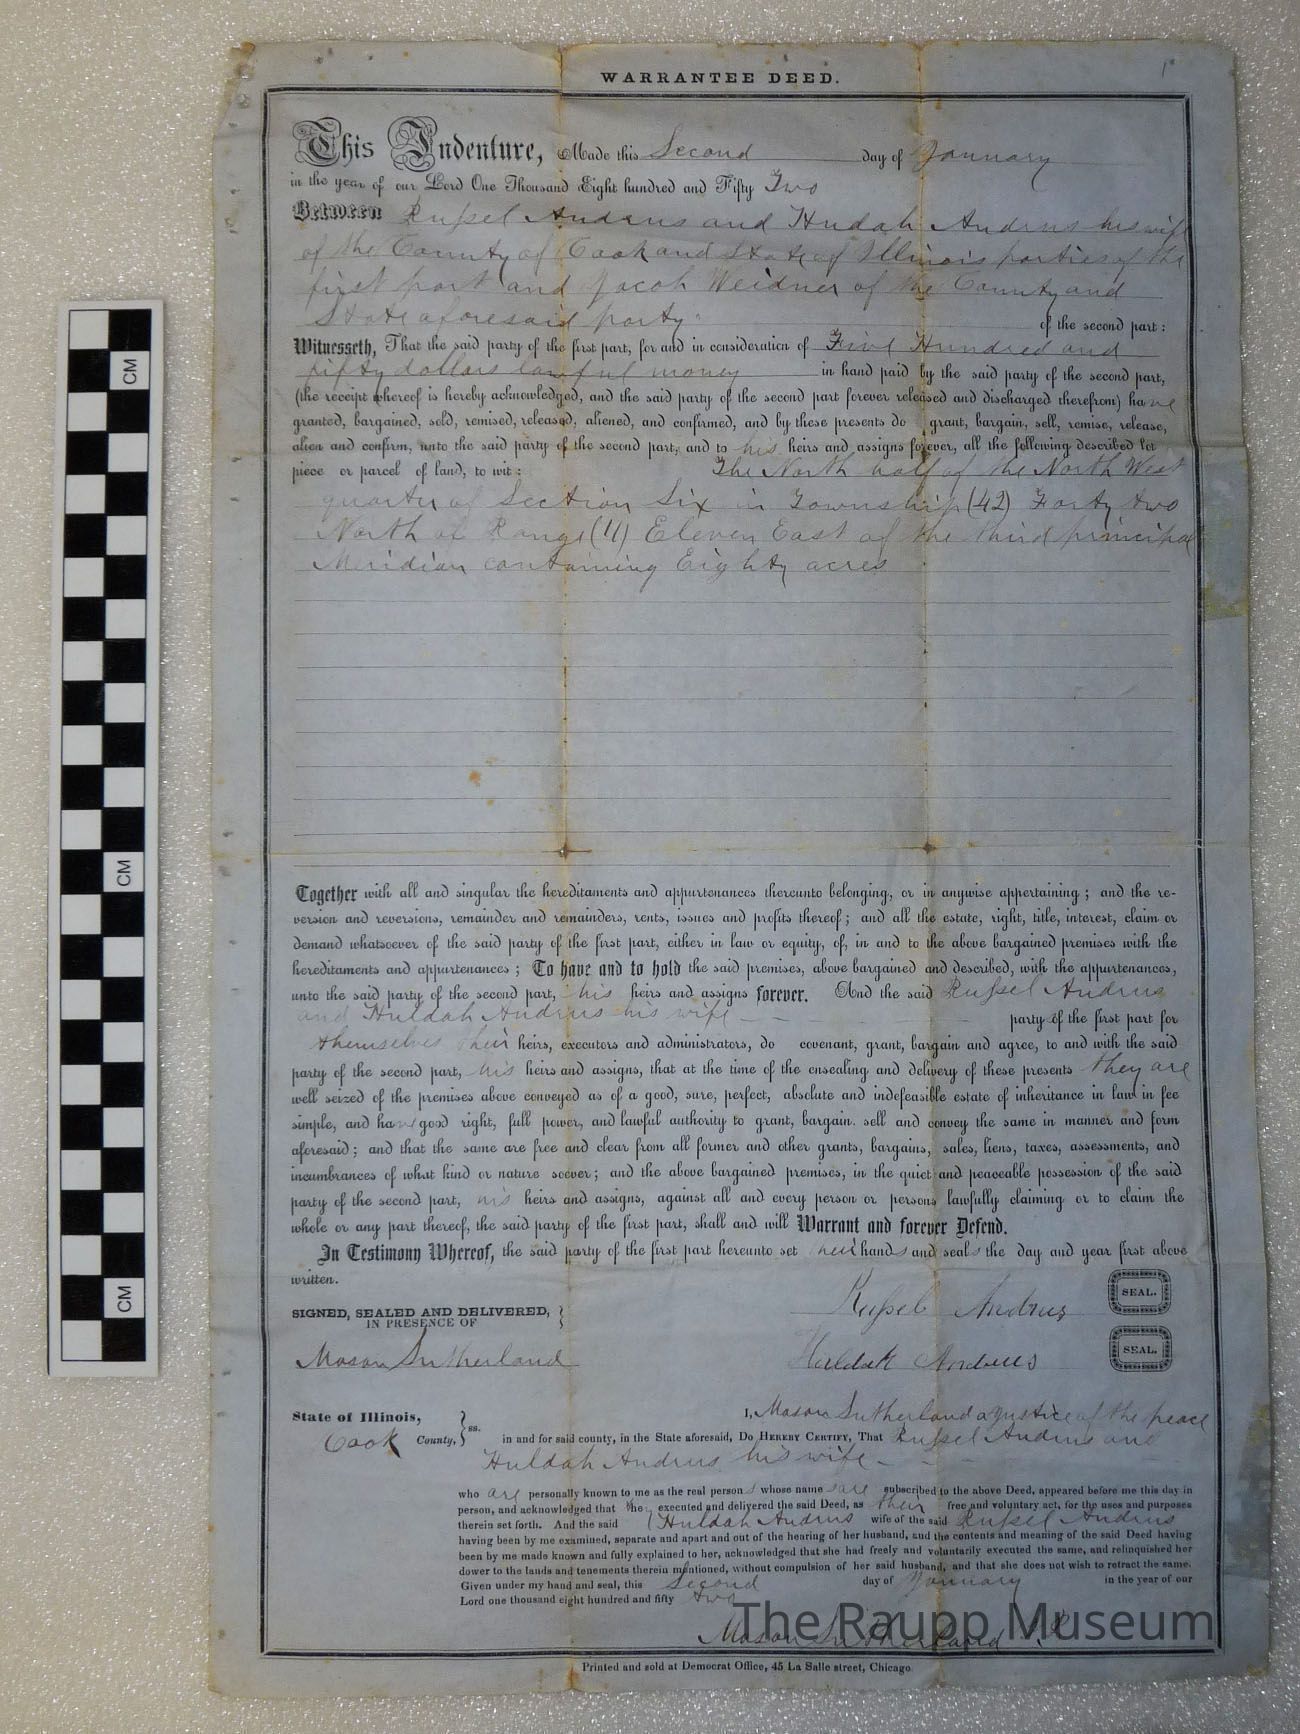 WARRANTEE DEED.
This Indenture, Made this Second day of January
in the year of our Lord One Thousand Eight hundred and Fifty Two
Between Russel Andrus and Hudah Andrus his wife
of the County of Cook and State of Illinois parties of the
first part and Jacob Weidner of the County and
State aforesaid party of the second part:
Witnesseth, That the said party of the first part, for and in consideration of Five Hundred and
fifty dollars lawful money in hand paid by the said party of the second part,
(the receipt whereof is hereby acknowledged, and the said party of the second part forever released and discharged therefrom) have
granted, bargained, sold, remised, released, aliened, and confirmed, and by these presents do grant, bargain, sell, remise, release,
alien and confirm, unto the said party of the second part, and to his heirs and assigns forever, all the following described lot
piece or parcel of land, to wit: The North half of the North West
quarter of Section Six in Township (42) Forty two
North of Range (11) Eleven East of the third principal
Meridian containing Eighty acres
Together with all and singular the hereditaments and appurtenances thereunto belonging, or in anywise appertaining; and the re-
version and reversions, remainder and remainders, rents, issues and profits thereof; and all the estate, right, title, interest, claim or
demand whatsoever of the said party of the first part, either in law or equity, of, in and to the above bargained premises with the
hereditaments and appurtenances; To have and to hold the said premises, above bargained and described, with the appurtenances,
unto the said party of the second part, his heirs and assigns forever. And the said Russel Andrus
and Huldah Andrus his wife party of the first part for
themselves their heirs, executors and administrators, do covenant, grant, bargain and agree, to and with the said
party of the second part, his heirs and assigns, that at the time of the ensealing and delivery of these presents they are
well seized of the premises above conveyed as of a good, sure, perfect, absolute and indefeasible estate of inheritance in law in fee
simple, and have good right, full power, and lawful authority to grant, bargain, sell and convey the same in manner and form
aforesaid; and that the same are free and clear from all former and other grants, bargains, sales, liens, taxes, assessments, and
incumbrances of what kind or nature soever; and the above bargained premises, in the quiet and peaceable possession of the said
party of the second part, his heirs and assigns, against all and every person or persons lawfully claiming or to claim the
whole or any part thereof, the said party of the first part, shall and will Warrant and forever Defend.
In Testimony Whereof, the said party of the first part hereunto set their hands and seals the day and year first above
written.
SIGNED, SEALED AND DELIVERED,
IN PRESENCE OF
Russel Andrus SEAL.
Mason Sutherland Huldah Andrus SEAL.
State of Illinois, I, Mason Sutherland a Justice of the peace
Cook County, ss. in and for said county, in the State aforesaid, DO HEREBY CERTIFY, That Russel Andrus and
Huldah Andrus his wife
who are personally known to me as the real persons whose names are subscribed to the above Deed, appeared before me this day in
person, and acknowledged that they executed and delivered the said Deed, as their free and voluntary act, for the uses and purposes
therein set forth. And the said Huldah Andrus wife of the said Russel Andrus
having been by me examined, separate and apart and out of the hearing of her husband, and the contents and meaning of the said Deed having
been by me made known and fully explained to her, acknowledged that she had freely and voluntarily executed the same, and relinquished her
dower to the lands and tenements therein mentioned, without compulsion of her said husband, and that she does not wish to retract the same.
Given under my hand and seal, this Second day of January in the year of our
Lord one thousand eight hundred and fifty two
Mason Sutherland J.P.
Printed and sold at Democrat Office, 45 La Salle street, Chicago.
CM
CM
CM
The Raupp Museum